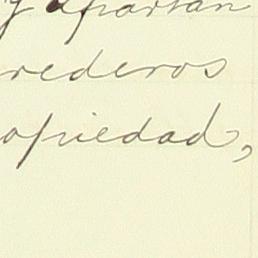 y apartan
rederos
opiedad,